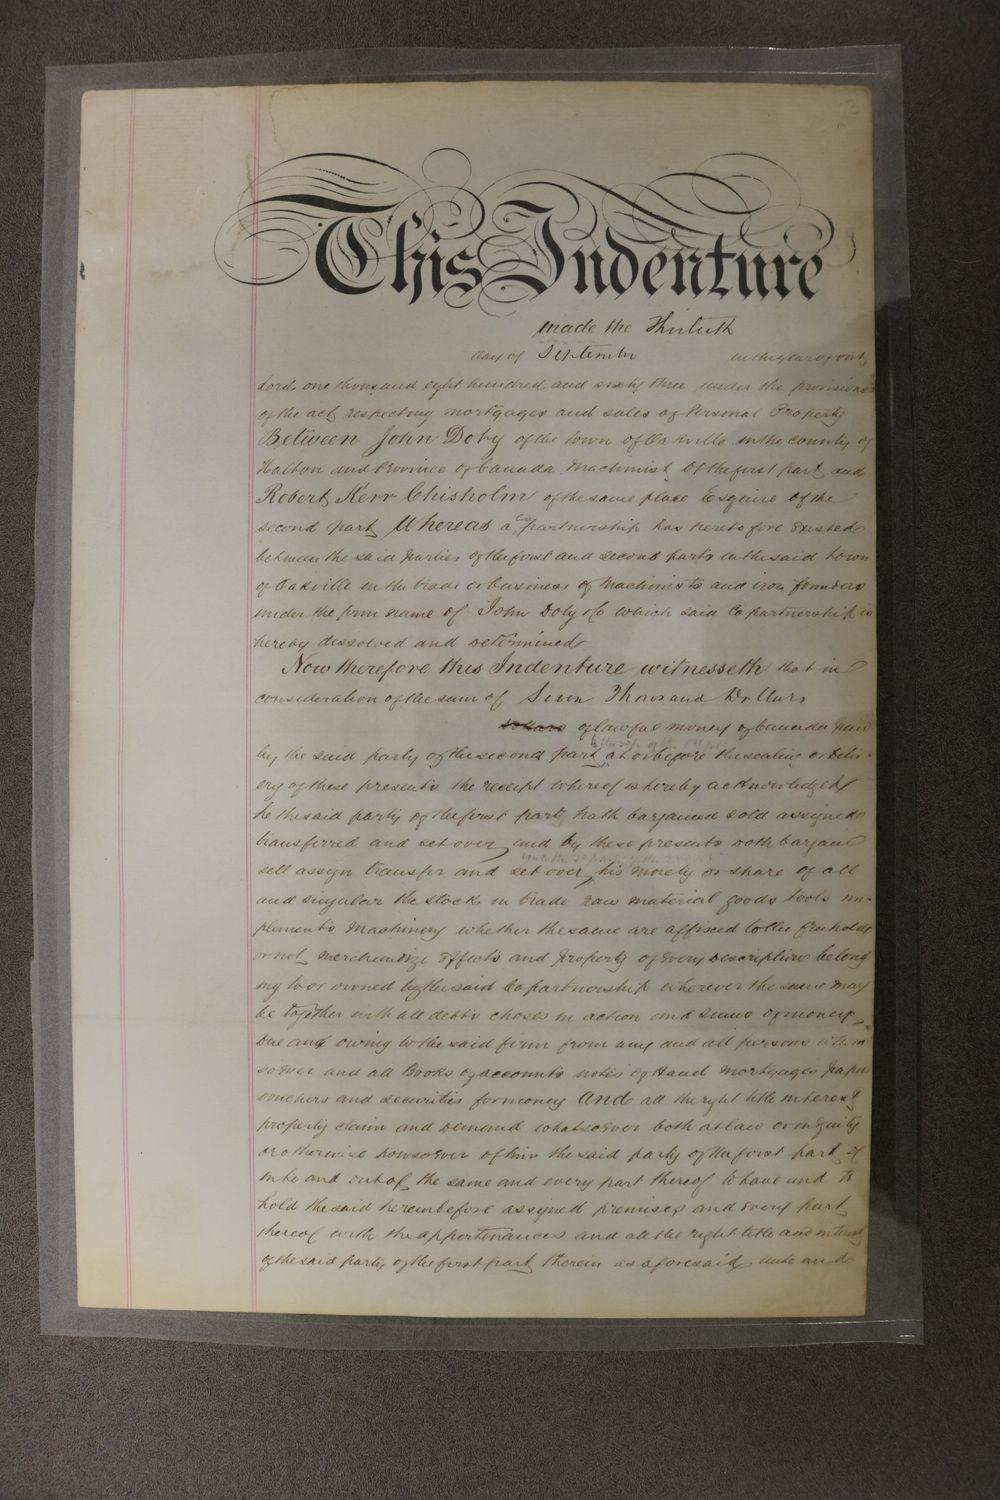 This Indenture
made the Thirtieth
day of September in the year of our
Lord one thousand eight hundred and sixty three under the provisions
of the act respecting mortgages and sales of Personal Property
Between John Doty of the town of Oakville in the county of
Halton and Province of Canada Machinist Of the first part and
Robert Kerr Chisholm of the same place Esquire of the
second part Whereas a Co partnership has heretofore existed
between the said parties of the first and second parts in the said town
of Oakville in the trade or business of Machinists and iron founders
under the firm name of John Doty & Co which said Co partnership is
hereby dissolved and determined
Now therefore this Indenture witnesseth that in
consideration of the sum of Seven Thousand Dollars
of lawful money of Canada paid
by the said party of the second part at or before the sealing or deliv-
ery of these presents the receipt whereof is hereby acknowledged
he the said party of the first part hath bargained sold assigned
transferred and set over and by these presents doth bargain
sell assign transfer and set over his moiety or share of all
and singular the stock in trade raw material goods tools im-
plements Machinery whether the same are affixed to the freehold
or not merchandize effects and property of every description belong
ing to or owned by the said Co partnership wherever the same may
be together with all debts choses in action and sums of money
due and owing to the said firm from any and all persons whom
soever and all Books of accounts notes of Hand Mortgages papers
vouchers and securities for money And all the right title interest
property claim and demand whatsoever both at law or in equity
or otherwise howsoever of him the said party of the first part of
into and out of the same and every part thereof To have and to
hold the said hereinbefore assigned premises and every part
thereof with the appertenances and all the right title and interest
of the said party of the first part therein as aforesaid unto and